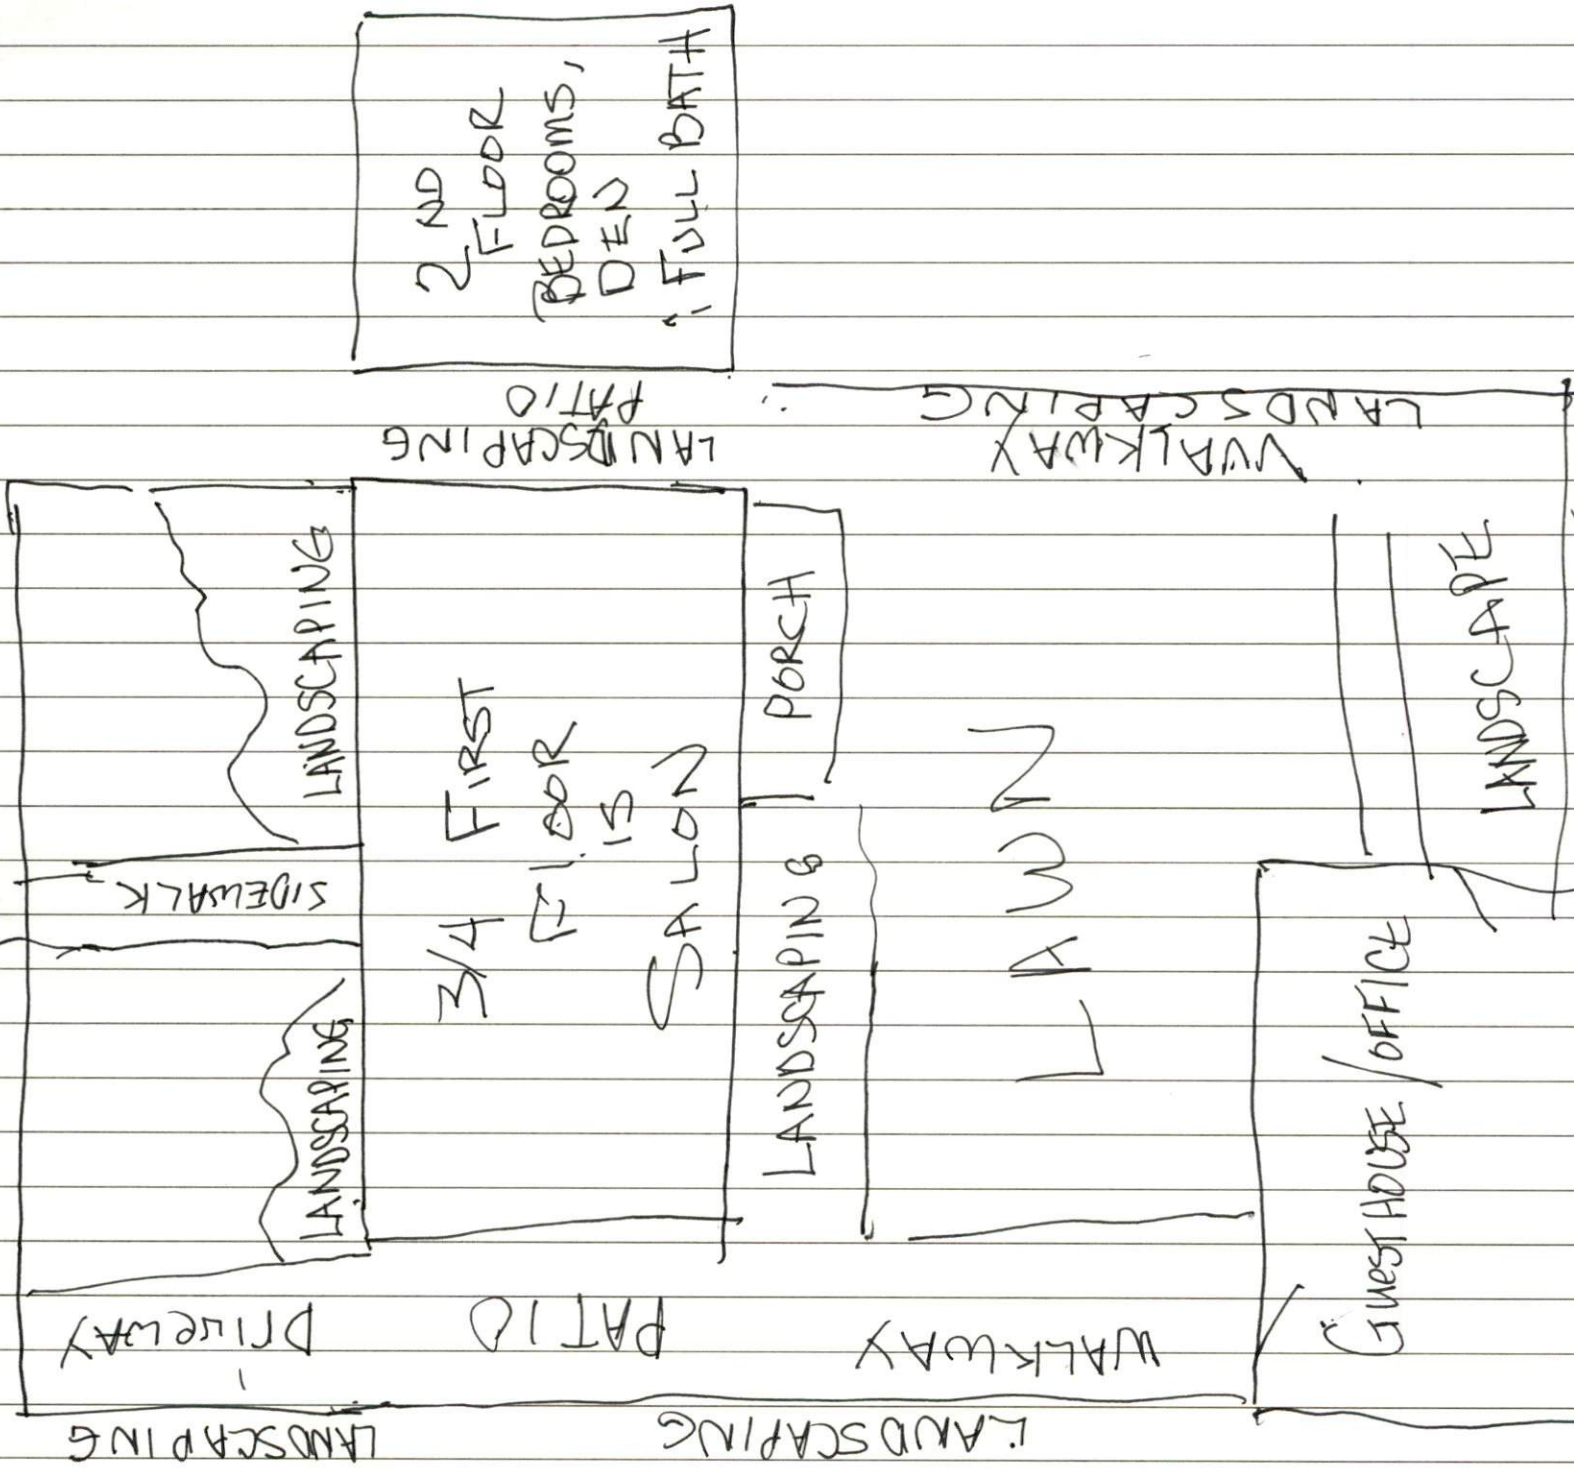 2 ND
FLOOR
BEDROOMS,
DEN
FULL BATH
PATIO
LANDSCAPING
LANDSCAPING
WALKWAY
LANDSCAPING
SIDEWALK
LANDSCAPING
3/4 FIRST
FLOOR
IS
SALON
PORCH
LANDSCAPING
LAWN
LANDSCAPE
GUESTHOUSE/OFFICE
DRIVEWAY
PATIO
WALKWAY
LANDSCAPING
LANDSCAPING